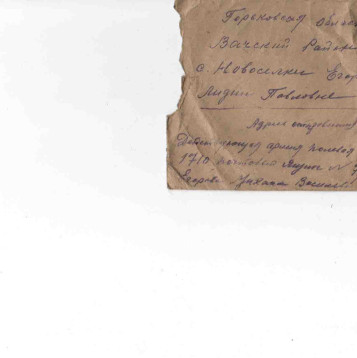 Горьковская облас
Вачский Район
с. Новоселки Егор
Лидии Павловне
Адрес отправителя
Действующая армия полевая
1710 почтовый Ящик №
Егоров Василь